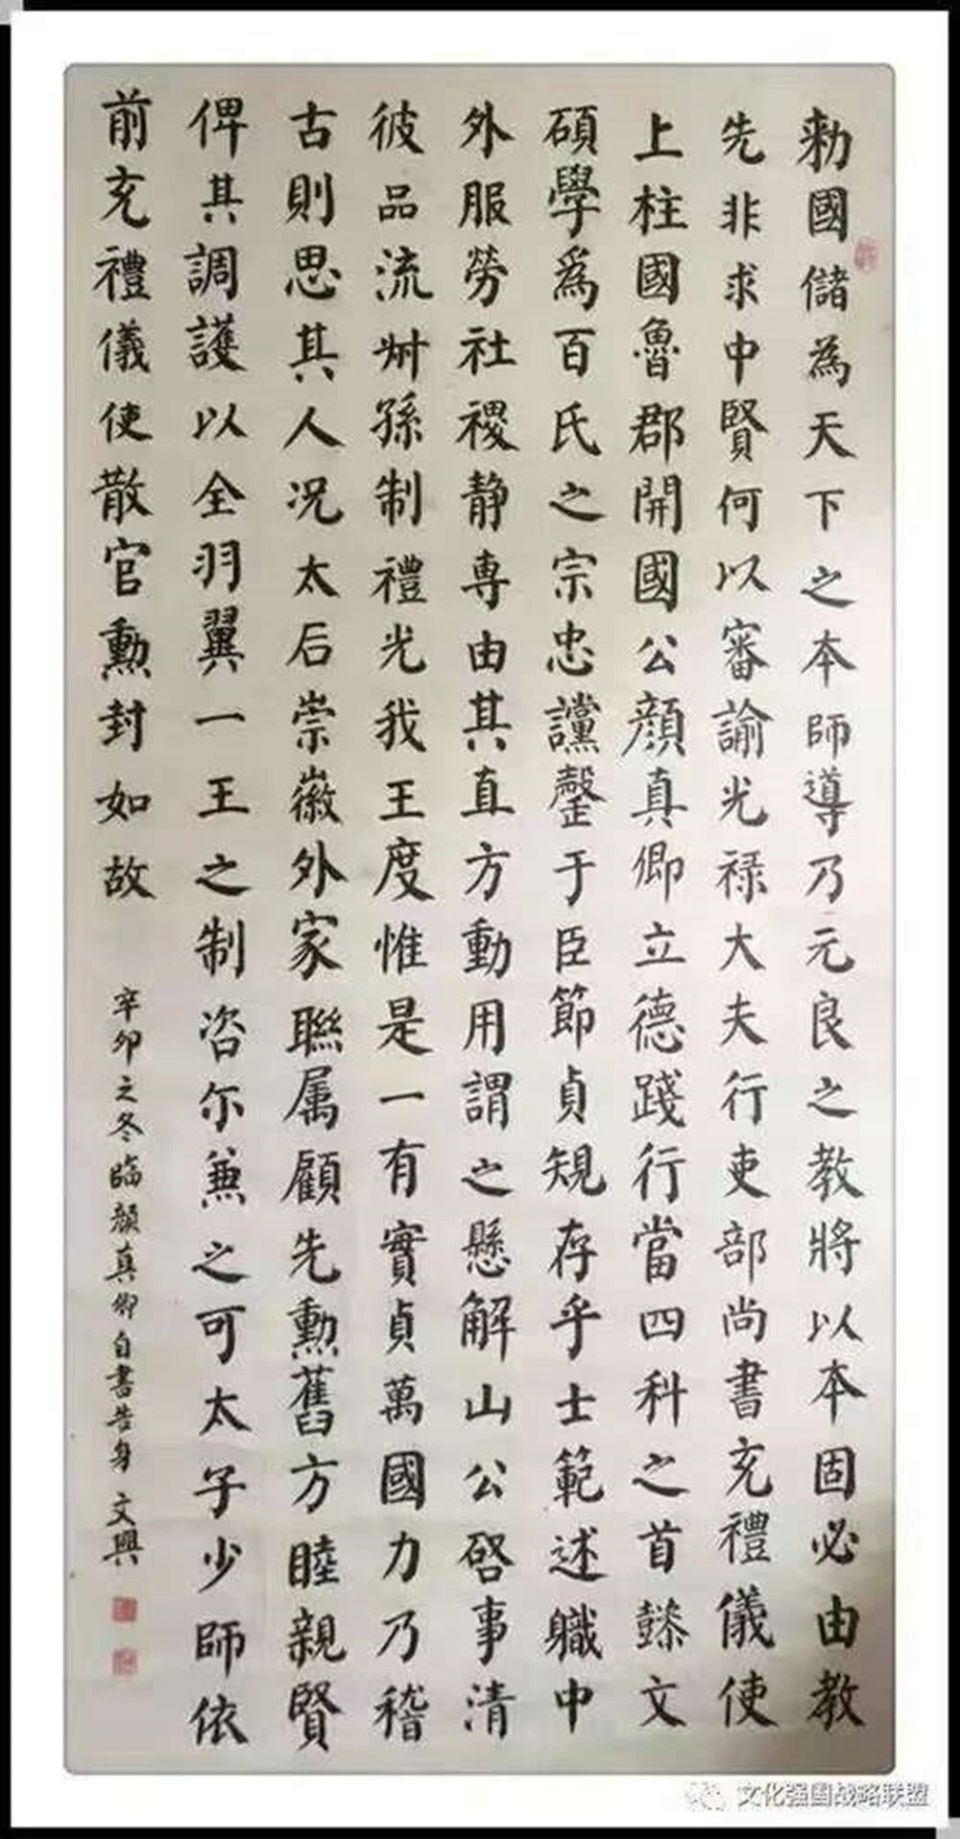 勑國儲為天下之本師導乃元良之教將以本固必由教
先非求中賢何以審諭光禄大夫行吏部尚書充禮儀使
上柱國魯郡開國公顏真卿立德踐行當四科之首懿文
碩學為百氏之宗忠讜罄于臣節貞規存乎士範述職中
外服勞社稷静専由其直方動用謂之懸解山公啓事清
彼品流卅孫制禮光我王度惟是一有實貞萬國力乃稽
古則思其人况太后崇徽外家聯属顧先勳舊方睦親賢
俾其調護以全羽翼一王之制咨尓兼之可太子少師依
前充禮儀使散官勳封如故
辛卯之冬臨顏真卿自書告身 文興
文化强国战略联盟